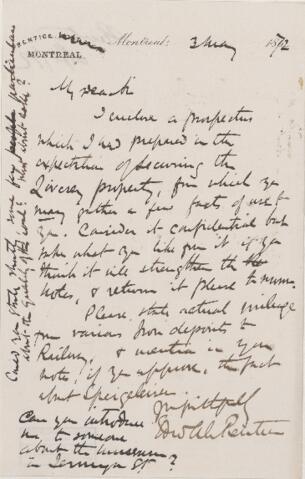 MONTREAL
Montreal: 3 May 1872
My dear Sir
I enclose a prospectus
which I had prepared in the
expectation of securing the
property, from which you
may gather a few facts of use to
you. Consider it confidential but
take what you like from it if you
think it will strengthen the
notes, & return it please to me.
Please state actual mileage
from various Iron deposits to
Railway, & mention in your
notes, if you approve, the fact
about Spiegeleisen.
Yrs faithfully
Can you introduce
me to someone
about the museum
in Jermyn St?
Could you state shortly some few particulars
about the quality of the coal?